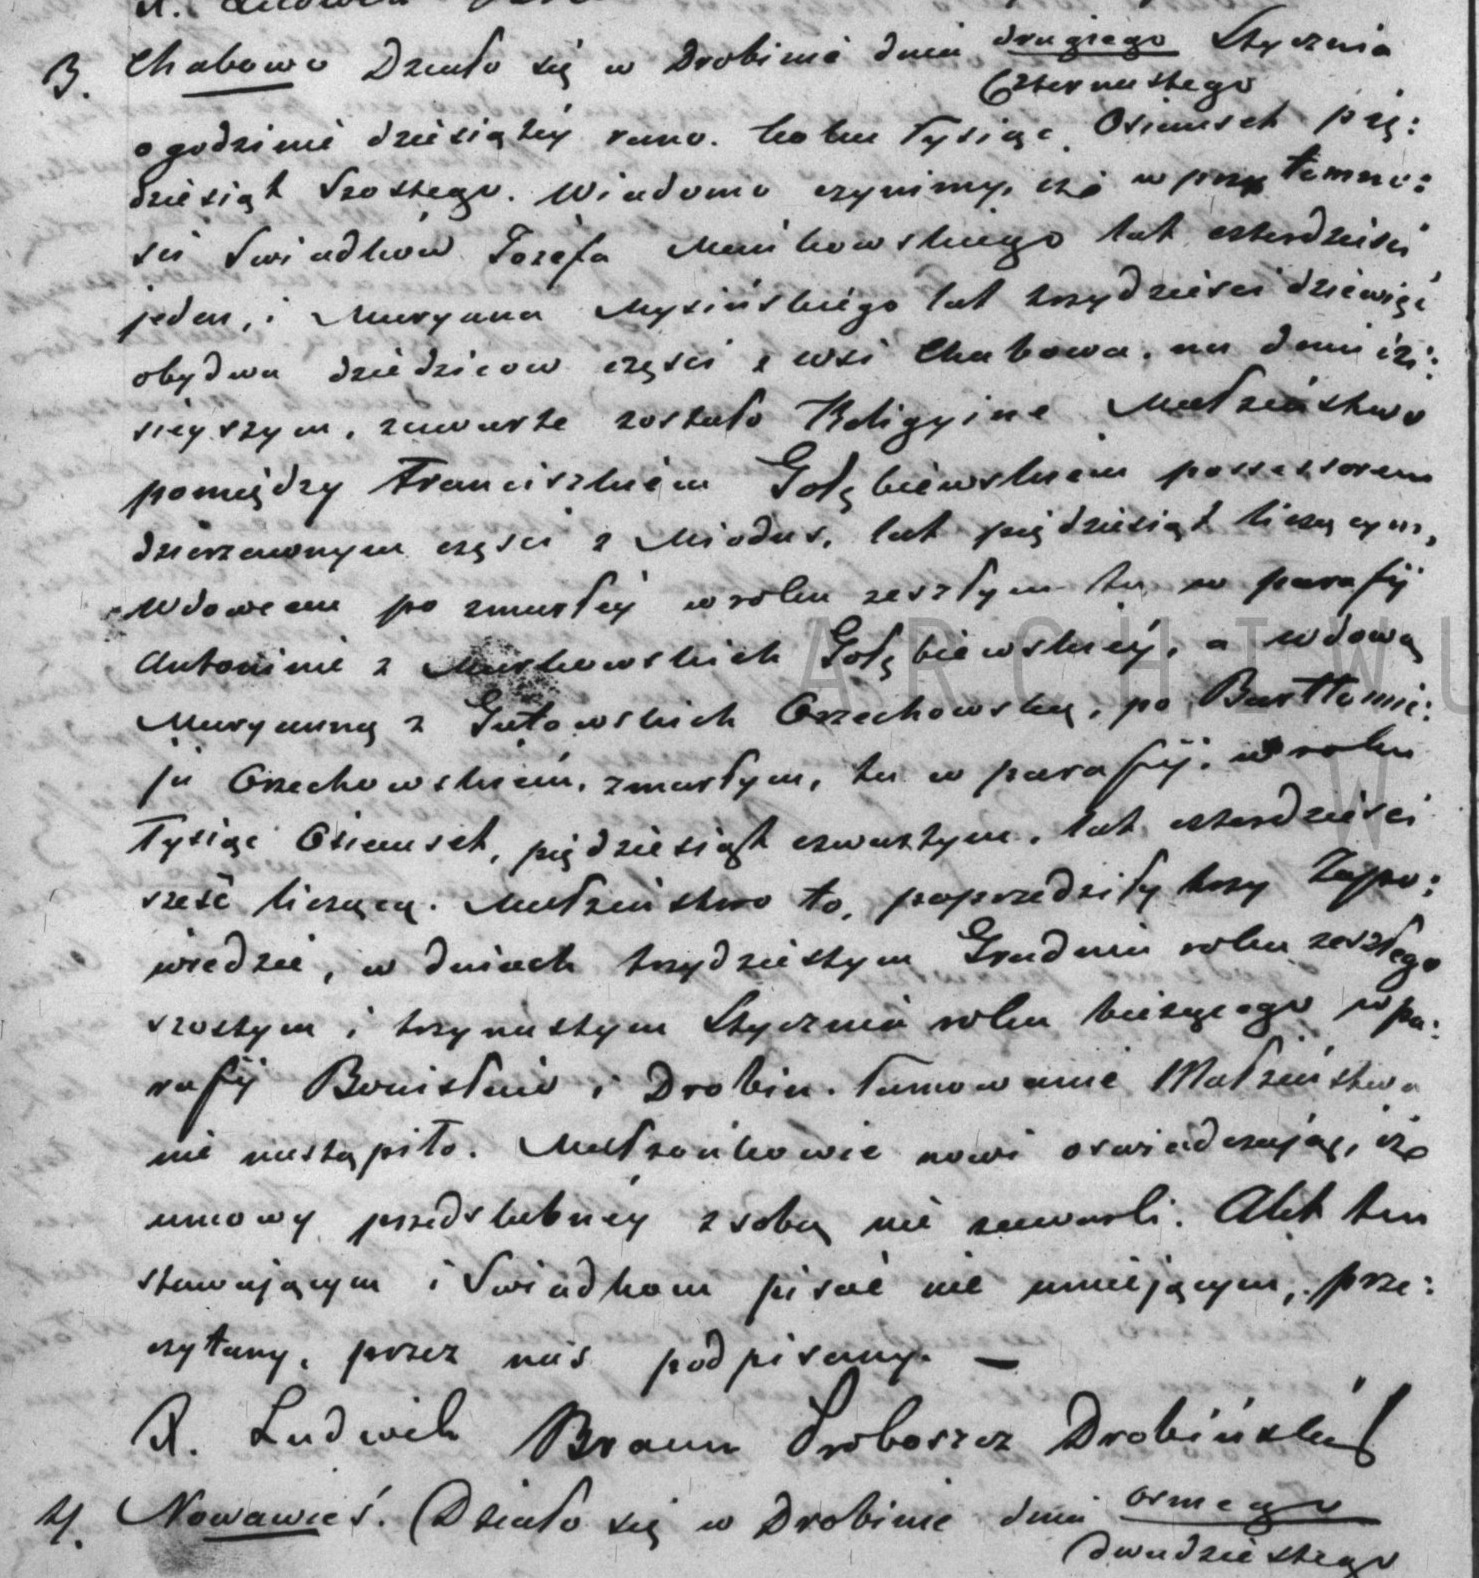 3. Chabowo Działo się w Drobinie dnia drugiego Stycznia
Czternastego
o godzinie dziesiątej rano. Roku Tysiąc Ośiemset pię:
dziesiąt Szostego. Wiadomo czynimy, iże w przytomno:
ści Świadków Józefa Mańkowskiego lat czterdzieści
jeden, i Maryana Mysińskiego lat trzydzieści dziewięć
obydwa dziedziców części z wsi Chabowa, na dniu dzi:
sieyszym, zawarte zostało Religyine Małzeństwo
pomiędzy Franciszkiem Gołębiewskiem possessorem
dzierzawnym części z Miodus, lat piędziesiąt liczącym,
Wdowcem po zmarłey w roku zeszłym tu w parafij
Antoninie z Gołębiewskiey, a wdową
Maryanną z Gutowskich Orzechowską, po Bartłomie:
ju Orzechowskiem, zmarłym, tu w parafij. w roku
Tysiąc Osiemset, piędziesiąt czwartym, lat czterdzieści
sześć liczącą. Małzeństwo to, poprzedziły trzy Zapo:
wiedzie, w dniach trzydziestym Grudnia roku zeszłego
szostym i trzynastym Stycznia roku bieżącego w pa:
rafij Bonisław i Drobin. Tamowanie Małzeństwa
nie nastąpiło. Małzonkowie nowi oswiadczają, iże
umowy przedslubney z sobą nie zawarli. Akt ten
stawającym i Swiadkom pisać nie umiejącym, prze:
czytany, przez nas podpisany. —
X. Ludwik Braun Proboszcz Drobiński
4. Nowawieś. Działo się w Drobinie dnia osmego
dwudziestego